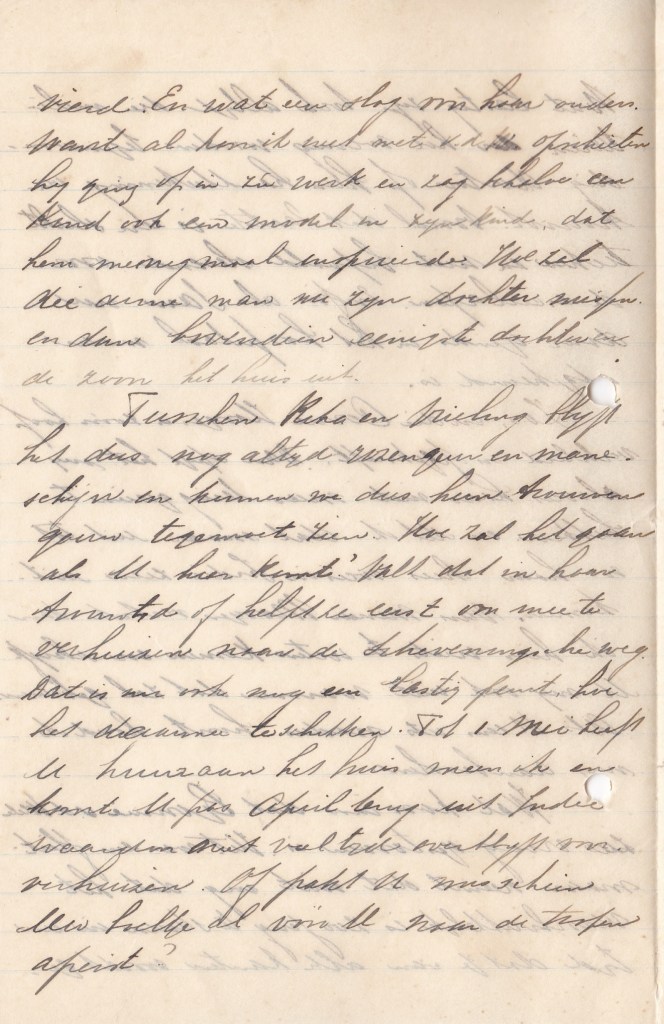 vierd. En wat een slag voor haar ouders.
Want al kon ik niet met v.d. W. opschieten
hy ging op in zyn werk en zag behalve een
kind ook een model in zyn kind, dat
hem menigmaal inspireerde. Hoe zal
die arme man nu zyn dochter missen.
en dan bovendien eenigste dochter en
de zoon het huis uit.
Tusschen Reka en Vieling blyft
het dus nog altyd rozengeur en mane-
schyn en kunnen we dus hun trouwen
gauw tegemoet zien. Hoe zal het gaan
als U hier komt? Valt dat in haar
trouwtyd of helpt ze eerst om mee te
verhuizen naar de Scheveningsche weg.
Dat is nu ook nog een lastig punt, hoe
het daarmee te schikken. Tot 1 Mei heeft
U huur aan het huis meen ik en
komt U pas April terug uit Indie
waardoor niet veel tyd overblyft voor
verhuizen. Of pakt U misschien
Uw boeltje al vóór U naar de tropen
afreist?